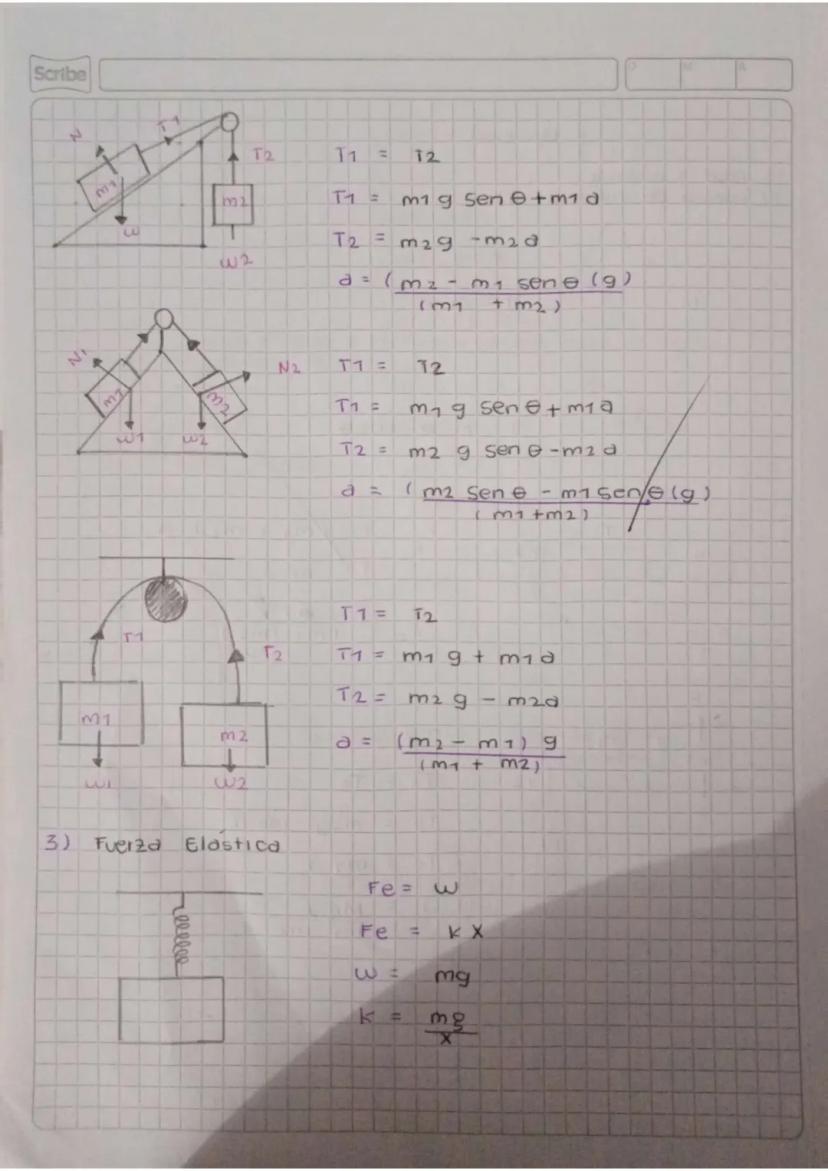 Scribe
D M A
N T1
m1 T2 T1 = T2
m2 T1 = m1 g sen θ + m1 a
w T2 = m2 g - m2 a
w2 a = (m2 - m1 sen θ (g)
(m1 + m2)
N1 N2 T1 = T2
m1 m2 T1 = m1 g sen θ + m1 a
w1 w2 T2 = m2 g sen θ - m2 a
a = (m2 sen θ - m1 sen θ (g)
(m1 + m2)
T1 = T2
T1 T2 T1 = m1 g + m1 a
T2 = m2 g - m2 a
m1 m2 a = (m2 - m1) g
w1 w2 (m1 + m2)
3) Fuerza Elástica
Fe = w
Fe = k x
w = mg
k = mg
x